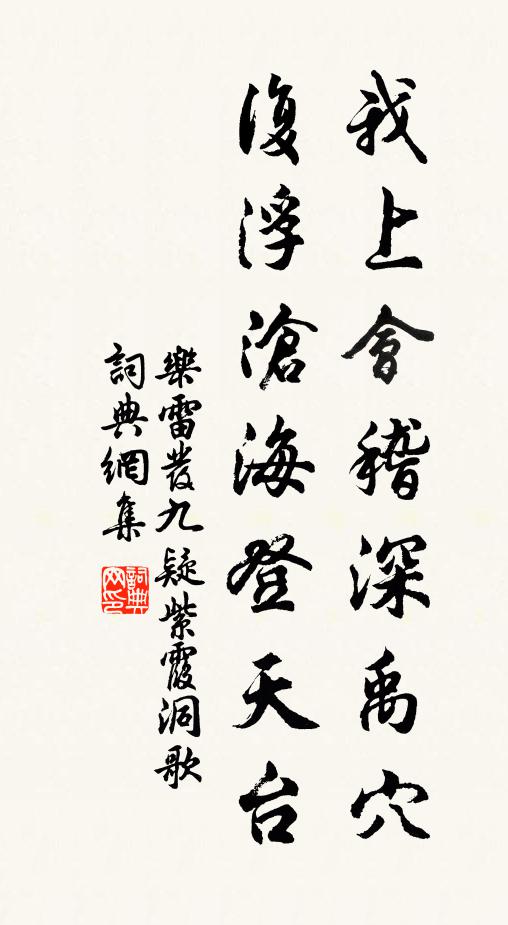 我上會稽深禹穴
復浮滄海登天台
樂雷發九疑紫霞洞歌
詞典網集
詞典
网印